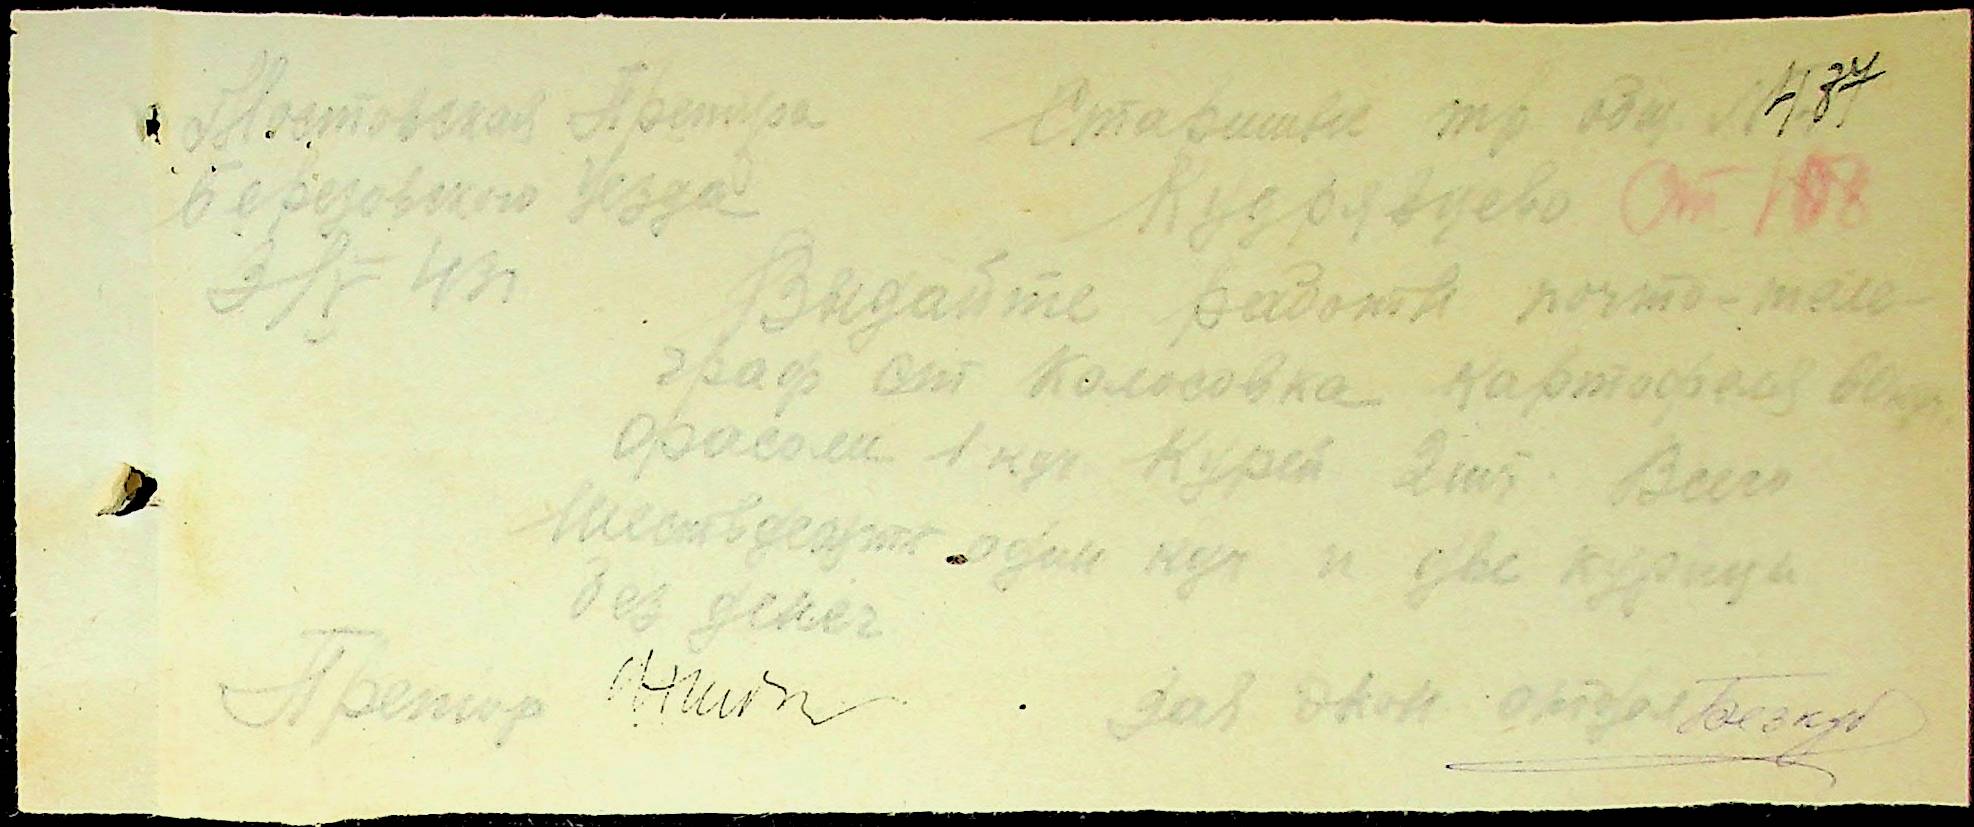 Мостовская Претура
Березовского Уезда
3/V 43г
487
Старшине тр общ
Кудрявцево
От 108
Выдайте работн почто-теле-
граф ст Колосовка картофеля
фасоли 1 кгр Курей 2 шт. Всего
Шестьдесять один кгр и две курици
без денег
Претор
Зав экон отдел Безкуб